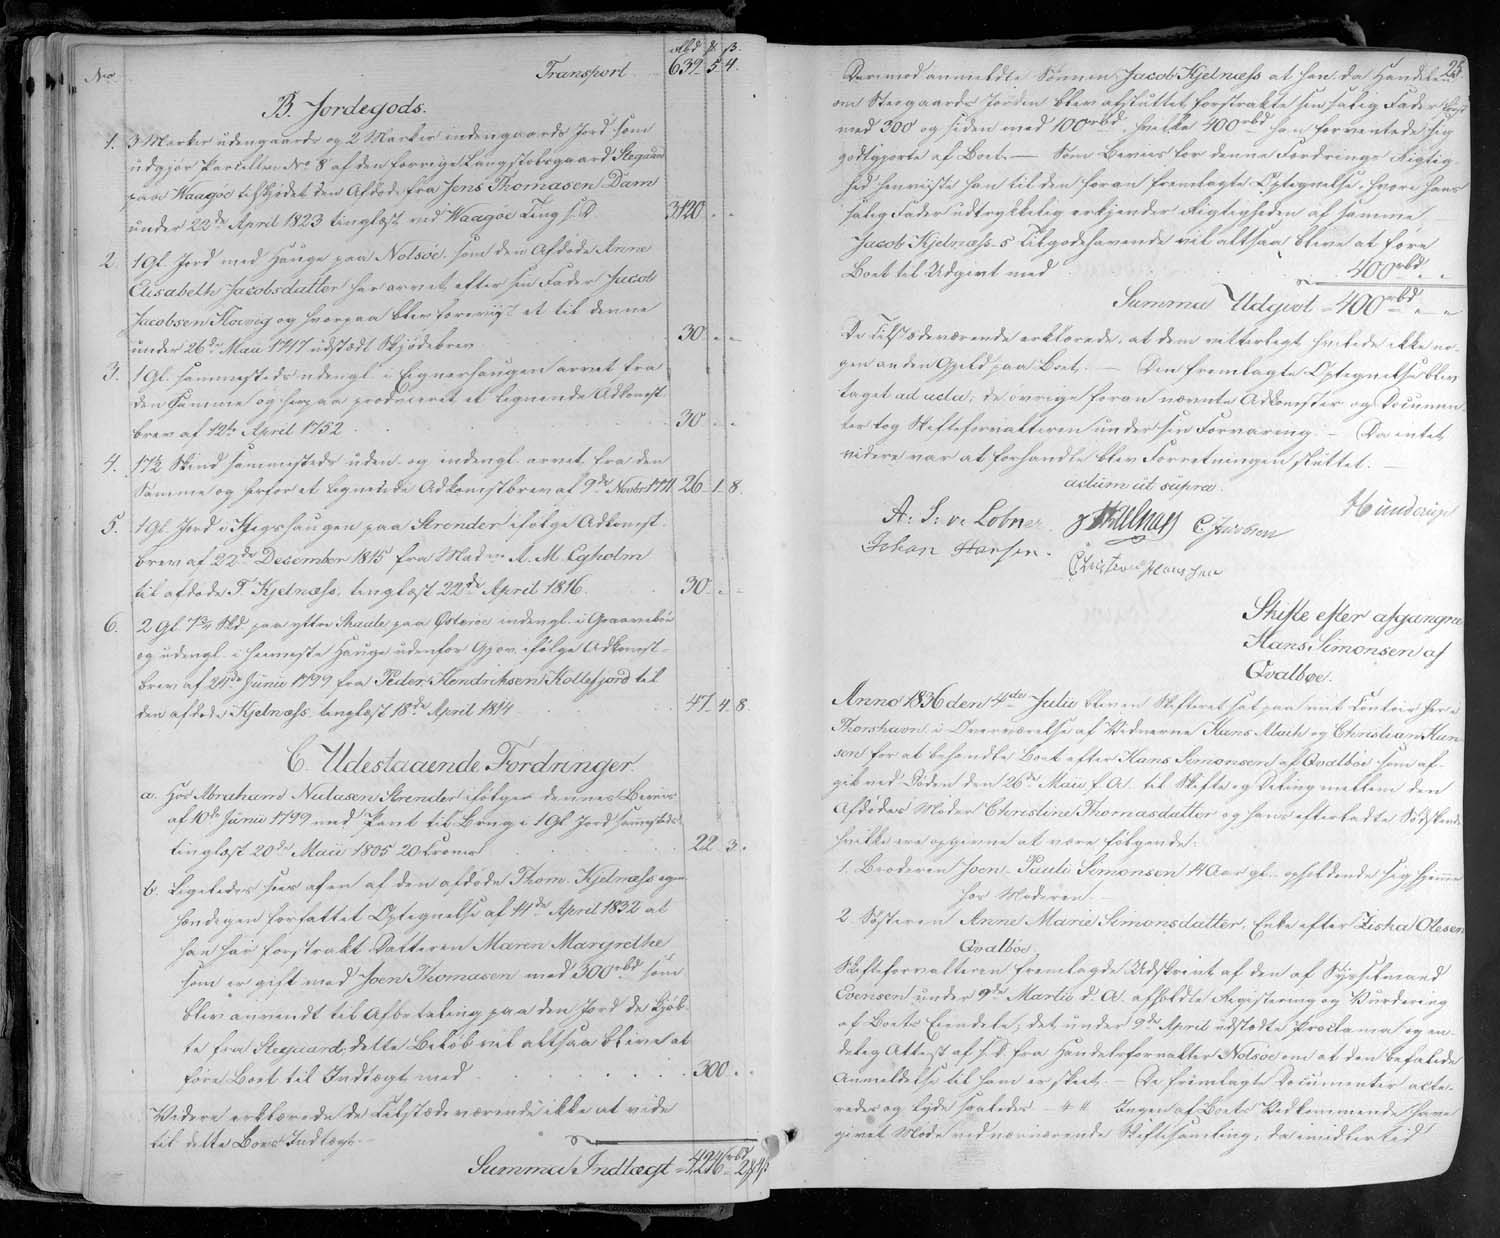 No Transport rbd ß. 639 5 4.
B. Jordegods.
1. 3 Marker udengaards og 2 Marker indengaards Jord som
udgjør Parcellen No 8 af den forrige Kongsfæstegaard Stegaard
paa Waagøe tilskjødet den Afdøde fra Jens Thomasen Dam
under 22de April 1823 tinglæst ved Waagøe Ting s. D. 3120 " "
2. 1 Gl. Jord med Hauge paa Nolsøe, som den Afdøde Anne
Elisabeth Jacobsdatter har arvet efter sin Fader Jacob
Jacobsen og hvorpaa blev foreviist et til denne
under 26de Maii 1747 udstædt Skjødebrev 30 " "
3. 1 Gl. sammesteds udengl. i Eignerhaugen arvet fra
den Samme og herpaa produceret et lignende Adkomst
brev af 12te April 1752 30 " "
4. 17½ Skind sammesteds uden- og indengl. arvet fra den
Samme og herfor et lignende Adkomstbrev af 9de Novbr 1771 26 1 8
5. 1 Gl. Jord i Stegshaugen paa Strender ifølge Adkomst-
brev af 22de December 1815 fra Madm A. M. Egholm
til afdøde T. Kjelnæss, tinglæst 22de April 1816. 30 " "
6. 2 Gl 7¾ Skd paa yttre Skaale paa Østerøe indengl. i
og udengl. i heimeste Hauge udenfor Gjov ifølge Adkomst-
brev af 24de Junii 1799 fra Peder Hendriksen Kollefjord til
den afdøde Kjelnæss, tinglæst 18de April 1814 47 4 8
C. Udestaaende Fordringer.
a. Hos Abraham Strender ifølge dennes Beviis
af 10de Junii 1799 med Pant til Brug i 1 Gl Jord sammesteds
tinglæst 20de Maii 1805 20 Kroner 22 3 "
b. Ligeledes sees af en af den afdøde Thom. Kjelnæss egen-
hændigen forfattet Optegnelse af 14de April 1832 at
han har forstrakt Datteren Maren Margrethe
som er gift med Joen Thomasen med 300rbd som
blev anvendt til Afbetaling paa den Jord de kjøb-
te fra Stegaard, dette Beløb vil altsaa blive at
føre Boet til Indtægt med 300 " "
Videre erklærede de Tilstædeværende ikke at vide
til dette Boes Indtægt.
Summa Indtægt = 4246rbd 2 4
25.
Derimod anmeldte Sønnen Jacob Kjelnæss at han da Handelen
om Stegaards Jorden blev afsluttet forstrakte sin salig Fader
med 300 og siden med 100rbd, hvilke 400rbd han forventede sig
godtgjorte af Boet. — Som Beviis for denne Fordrings Rigtig-
hed henviiste han til den foran fremlagte Optegnelse, hvori hans
salig Fader udtrykkelig erkjender Rigtigheden af samme. —
Jacob Kjelnæss's Tilgodehavende vil altsaa blive at føre
Boet til Udgivt med 400rbd " "
Summa Udgivt = 400rbd " "
De Tilstædeværende erklærede, at dem vitterligt heftede ikke no-
gen anden Gjeld paa Boet. — Den fremlagte Optegnelse blev
taget ad acta, de øvrige foran nævnte Adkomster og Documen-
ter tog Skifteforvalteren under sin Forvaring. — Da intet
videre var at forhandle blev Forretningen sluttet. —
actum ut supra.
Hunderup
A: S: v: Løbner. J Kjelnæs C. Jacobsen
Johan Hansen. Christian Hansen
Skifte efter afgangne
Hans Simonsen af
Qvalbøe.
Anno 1836 den 4de Julii blev en Skifteret sat paa mit Contoir her i
Thorshavn i Overværelse af Vidnerne Hans Math og Christian Han-
sen for at behandle Boet efter Hans Simonsen af Qvalbøe som af-
gik ved Døden den 26de Maii f. A. til Skifte og Deling mellem den
Afdødes Moder Christine Thomasdatter og hans efterladte Sødskende
hvilke ere opgivne at være følgende:
1. Broderen Joen Pauli Simonsen 14 Aar gl. opholdende sig hjemme
hos Moderen. —
2. Søsteren Anne Marie Simonsdatter, Enke efter Zisha Olesen
Qvalbøe.
Skifteforvalteren fremlagde Udskrivt af den af Sysselmand
Evensen under 9de Martii d. A. afholdte Registering og Vurdering
af Boets Eiendele; det under 9de April udstædte Proclama og en-
deleg Attest af s. D. fra Handelsforvalter Nolsøe om at den befalede
Anmeldelse til ham er skeet. — De fremlagte Documenter acte-
redes og lyde saaledes — Ingen af Boets Vedkommende have
givet Møde ved nærværende Skiftesamling; da imidlertid